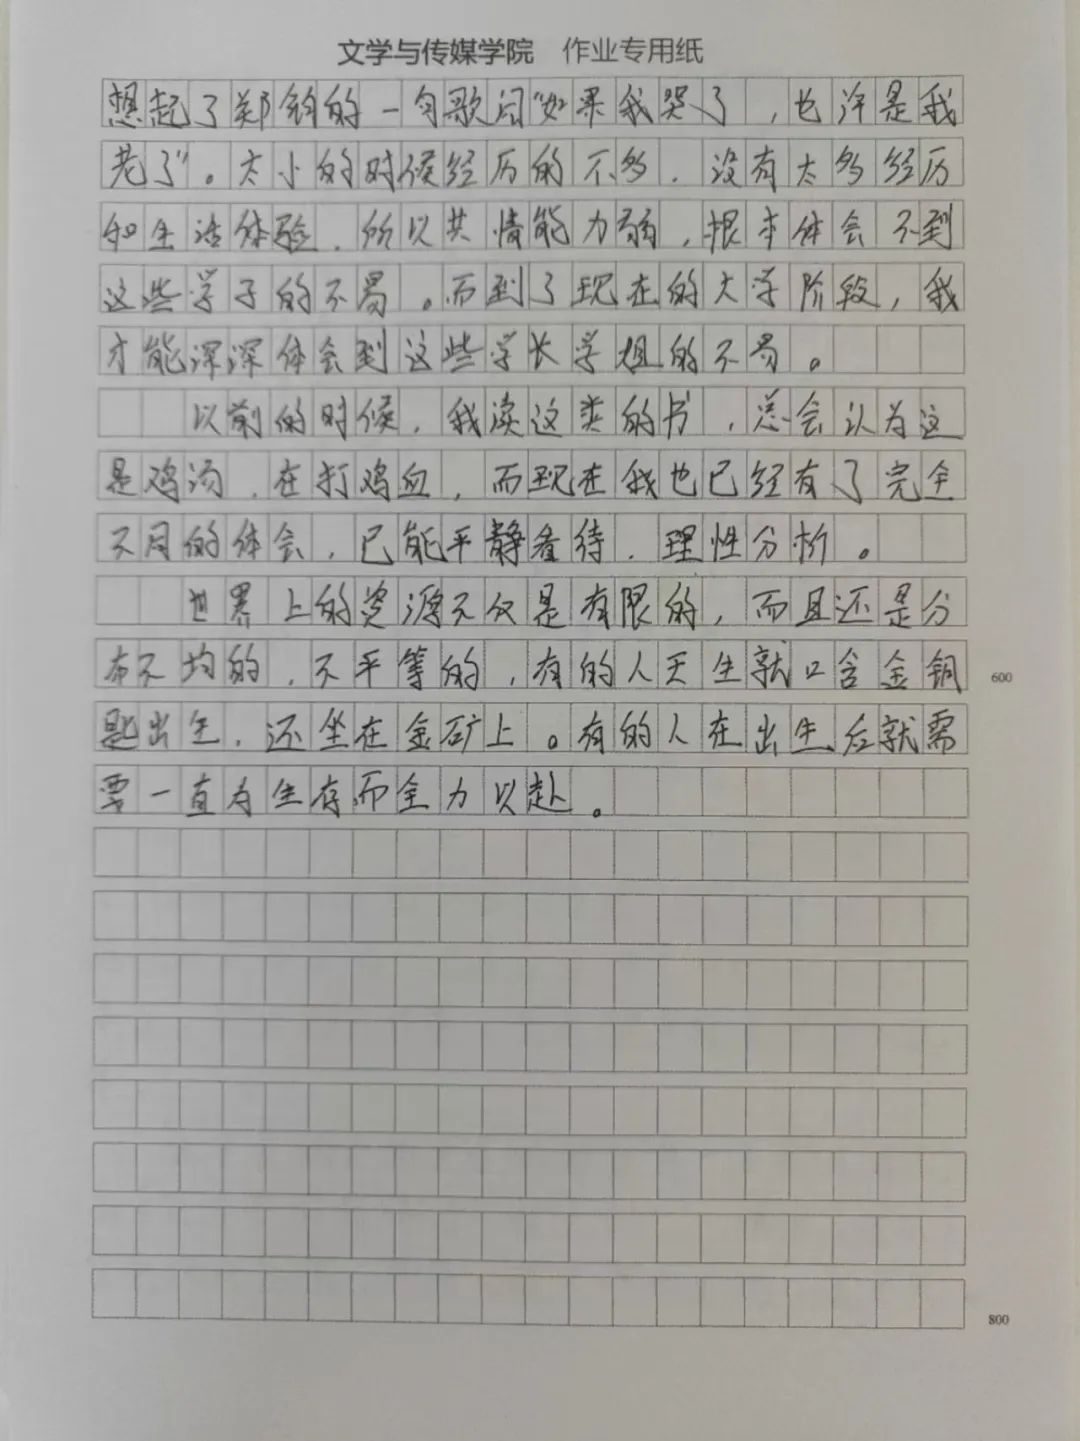 文学与传媒学院 作业专用纸
想起了郑钧的一句歌词“如果我哭了,也许是我
老了”。太小的时候经历的不多,没有太多经历
和生活体验,所以共情能力弱,根本体会不到
这些学子的不易。而到了现在的大学阶段,我
才能深深体会到这些学长学姐的不易。
以前的时候,我读这类的书,总会认为这
是鸡汤,在打鸡血,而现在我也已经有了完全
不同的体会,已能平静看待,理性分析。
世界上的资源不仅是有限的,而且还是分
布不均的,不平等的,有的人天生就口含金钥
600
匙出生,还坐在金矿上。有的人在出生后就需
要一直为生存而全力以赴。
800